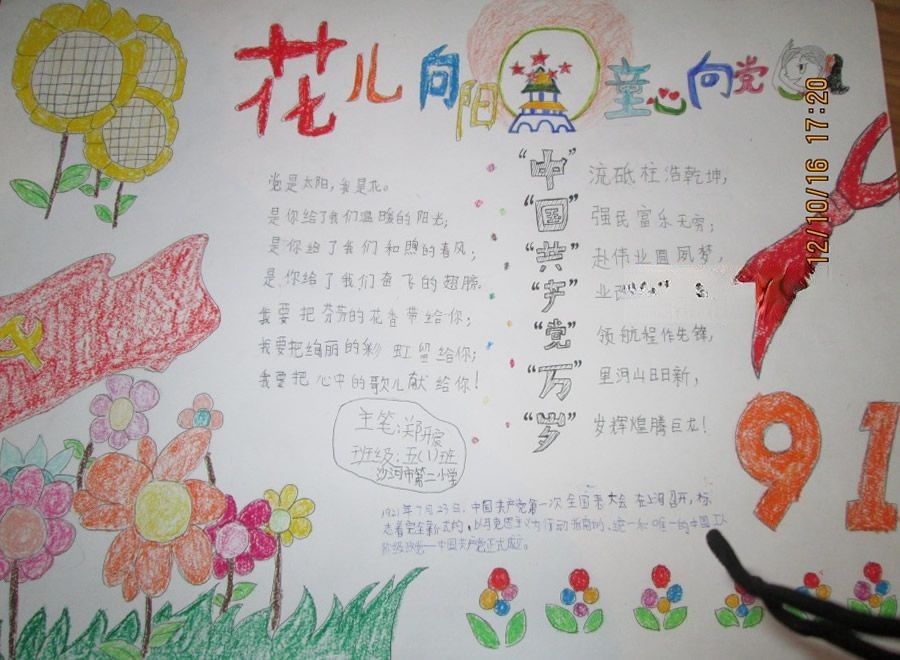 花儿向阳 童心向党
12/10/16 17:20
党是太阳，我是花。
是你给了我们温暖的阳光；
是你给了我们和煦的春风；
是你给了我们奋飞的翅膀。
我要把芬芳的花香带给你；
我要把绚丽的彩虹留给你；
我要把心中的歌儿献给你！
主笔：郑
班级：五(1)班
沙河市第二小学
"中"流砥柱浩乾坤，
"国"强民富乐无穷；
"共"赴伟业圆夙梦，
"产"业
"党"领航程作先锋，
"万"里河山日日新，
"岁"岁辉煌腾巨龙！
91
1921年7月23日，中国共产党第一次全国代表大会在上海召开，标
志着完全新式的、以马克思主义为行动指南的、统一和唯一的中国工人
阶级政党——中国共产党正式成立。